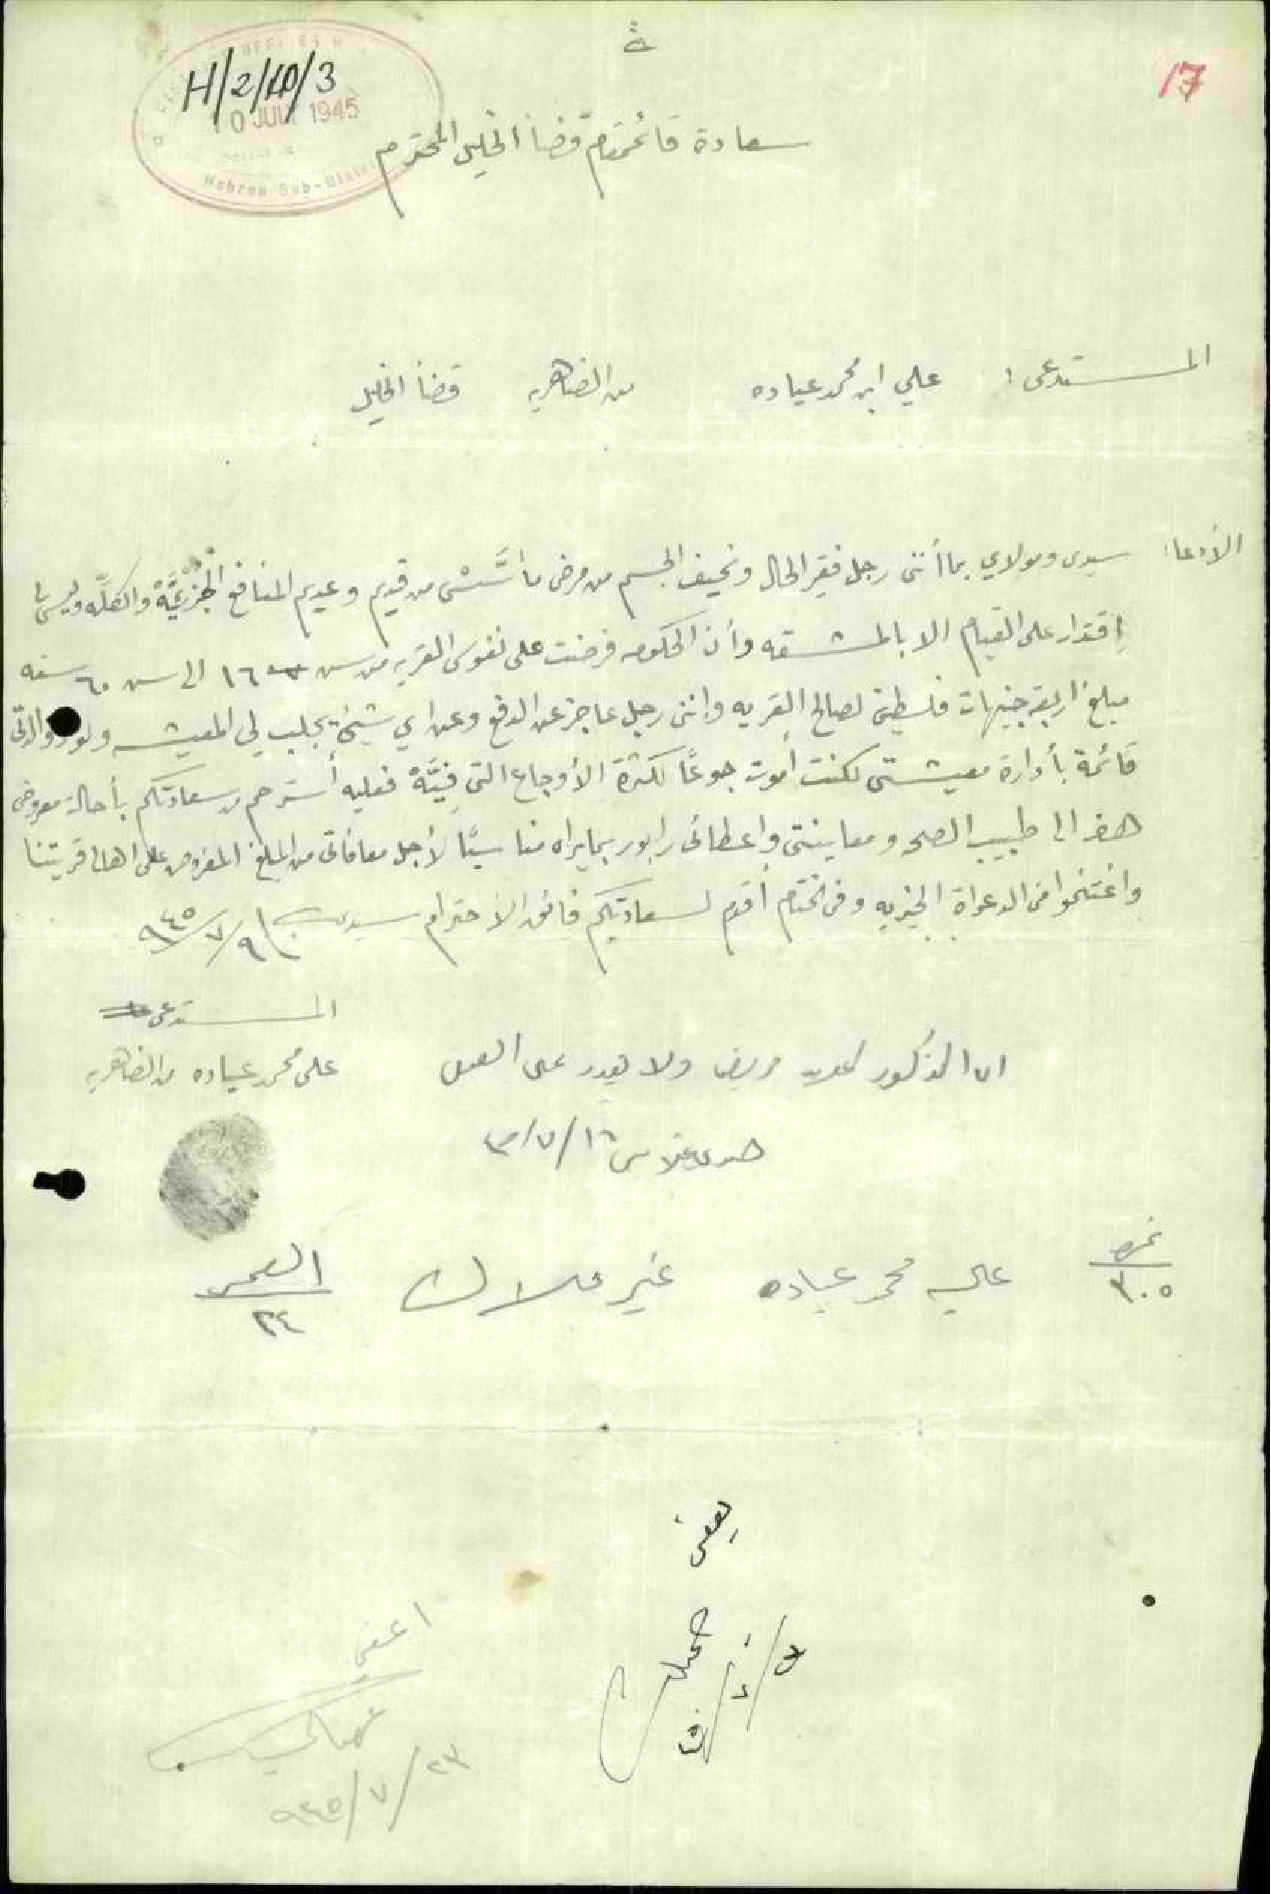 ة
17
H/2/40/3
10 JUL 1945
Hebron Sub-Dist
سعادة قائمقام قضأ الخليل المحترم
المستدعى : علي ابن محمد عياده من الضاهريه قضأ الخليل
الأدعا : سيدى ومولاي بما أننى رجل فقير الحال ونحيف الجسم من مرض متأسَّسْ من قديم وعديم المنافع الجُزئيَّهْ والكليَّه وليس لى
اِقتدار على القيام الا بالمشقه وأن الحكومه فرضت على نفوس القريه من سن ١٦ الى سن ٦٠ سنه
مبلغ اربعة جنيهات فلسطينى لصالح القريه واننى رجل عاجز عن الدفع وعن اي شيئ يجلب لي المعيشه ولولا والدتى
قائمة بأدارة معيشتى لكنت أموت جوعًا لكثرة الأوجاع التى فِيَّهْ فعليه أسترحم من سعادتكم بأحالة معروضى
هذا الى طبيب الصحه ومعاينتى واعطائى رابور بما يراه مناسبًا لأجل معافاتى من المبلغ المفروض على اهالى قريتنا
واغتنموا منى الدعواة الخيريه وفى الختام أقدم لسعادتكم فائق الأحترام سيدى ٩/٧/٩٤٥
المستدعى
على محمد عياده من الضاهريه
ان المذكور اعلاه مريض ولا يقدر على العمل
١٦/٧/
نمره
٣٠٥
علي محمد عياده غير ملاك العمر
٢٤
يعفى
اعفي
٢٣/٧/٩٤٥